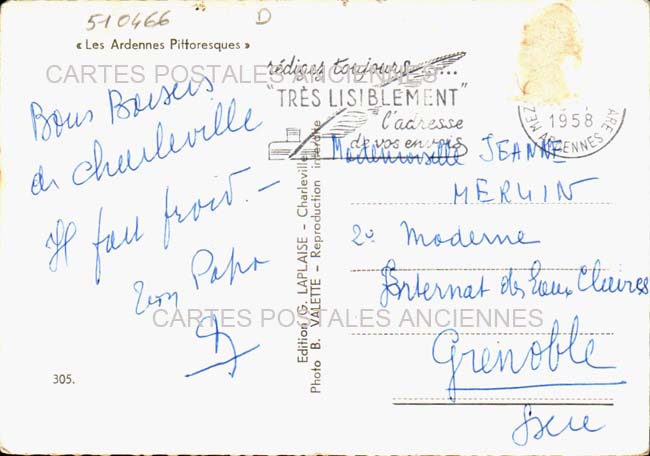 510466 D
« Les Ardennes Pittoresques »
CARTES POSTALES ANCIENNES
rédigez toujours...
"TRÈS LISIBLEMENT"
l'adresse
de vos envois
1958
MEZ ARDENNES GARE
Bons Baisers
de Charleville
Il fait froid. _
Ton Papa
Edition G. LAPLAISE - Charleville
Photo B. VALETTE - Reproduction interdite
Mademoiselle JEANNE
MERLIN
2e Moderne
Internat des Eaux Claires
Grenoble
Isere
CARTES POSTALES ANCIENNES
305.